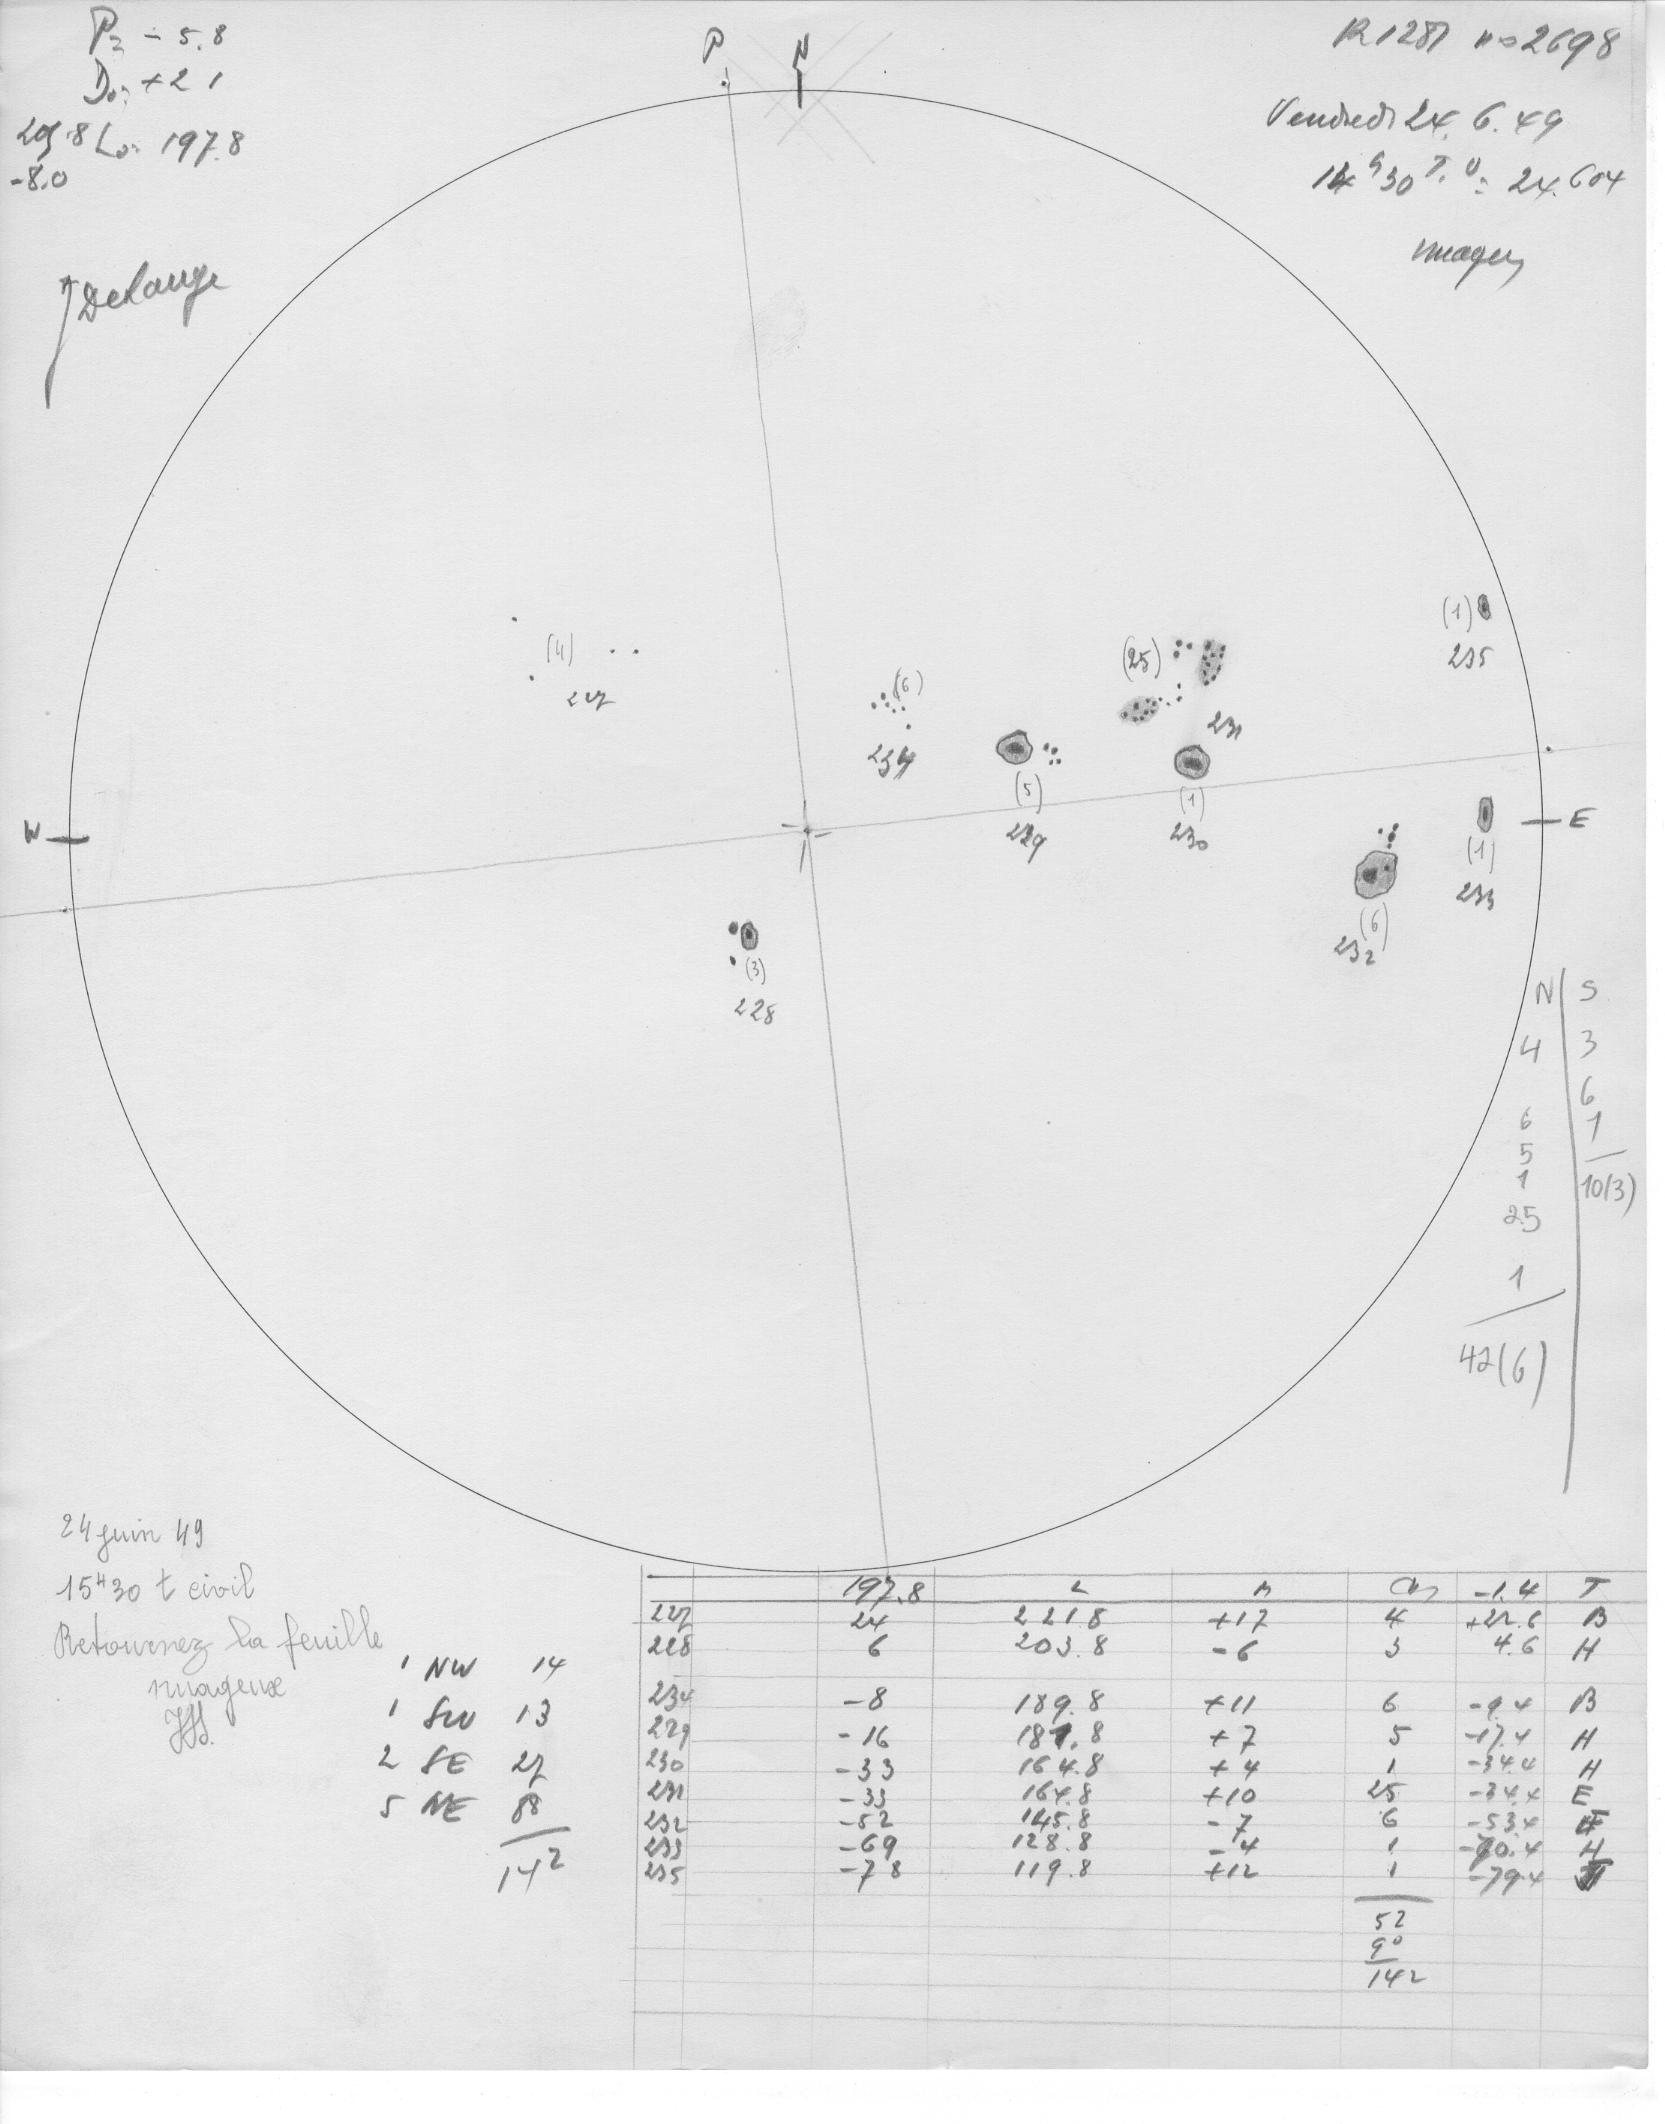 P= -5.8
Do= +2 1
Lo= 197.8
-8.0
Delange
P N
R1287 no 2698
Vendredi 24.6.49
14h30 T.U= 24.604
nuageux
(4)
227
(6)
234
(25)
231
(1)
235
(5)
229
(1)
230
W
E
(1)
233
(6)
232
(3)
228
N S
4 3
6
6 1
5
1 10(3)
25
1
42(6)
24 juin 49
15h30 t civil
Retournez la feuille
nuageux
JH.
1 NW 14
1 SW 13
2 SE 27
5 NE 88
142
197.8 L -1.4 T
227 24 221.8 +17 4 +22.6 B
228 6 203.8 -6 3 4.6 H
234 -8 189.8 +11 6 -9.4 B
229 -16 181.8 +7 5 -17.4 H
230 -33 164.8 +4 1 -34.4 H
231 -33 164.8 +10 25 -34.4 E
232 -52 145.8 -7 6 -53.4
233 -69 128.8 -4 1 -70.4 H
235 -78 119.8 +12 1 -79.4
52
90
142